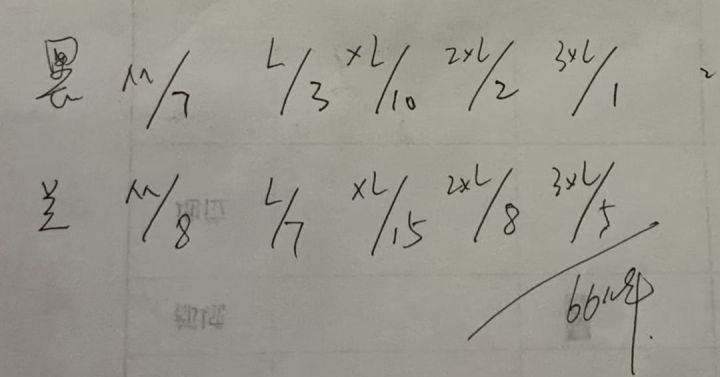 黑 M/7 L/3 XL/10 2XL/2 3XL/1
兰 M/8 L/7 XL/15 2XL/8 3XL/5
66件